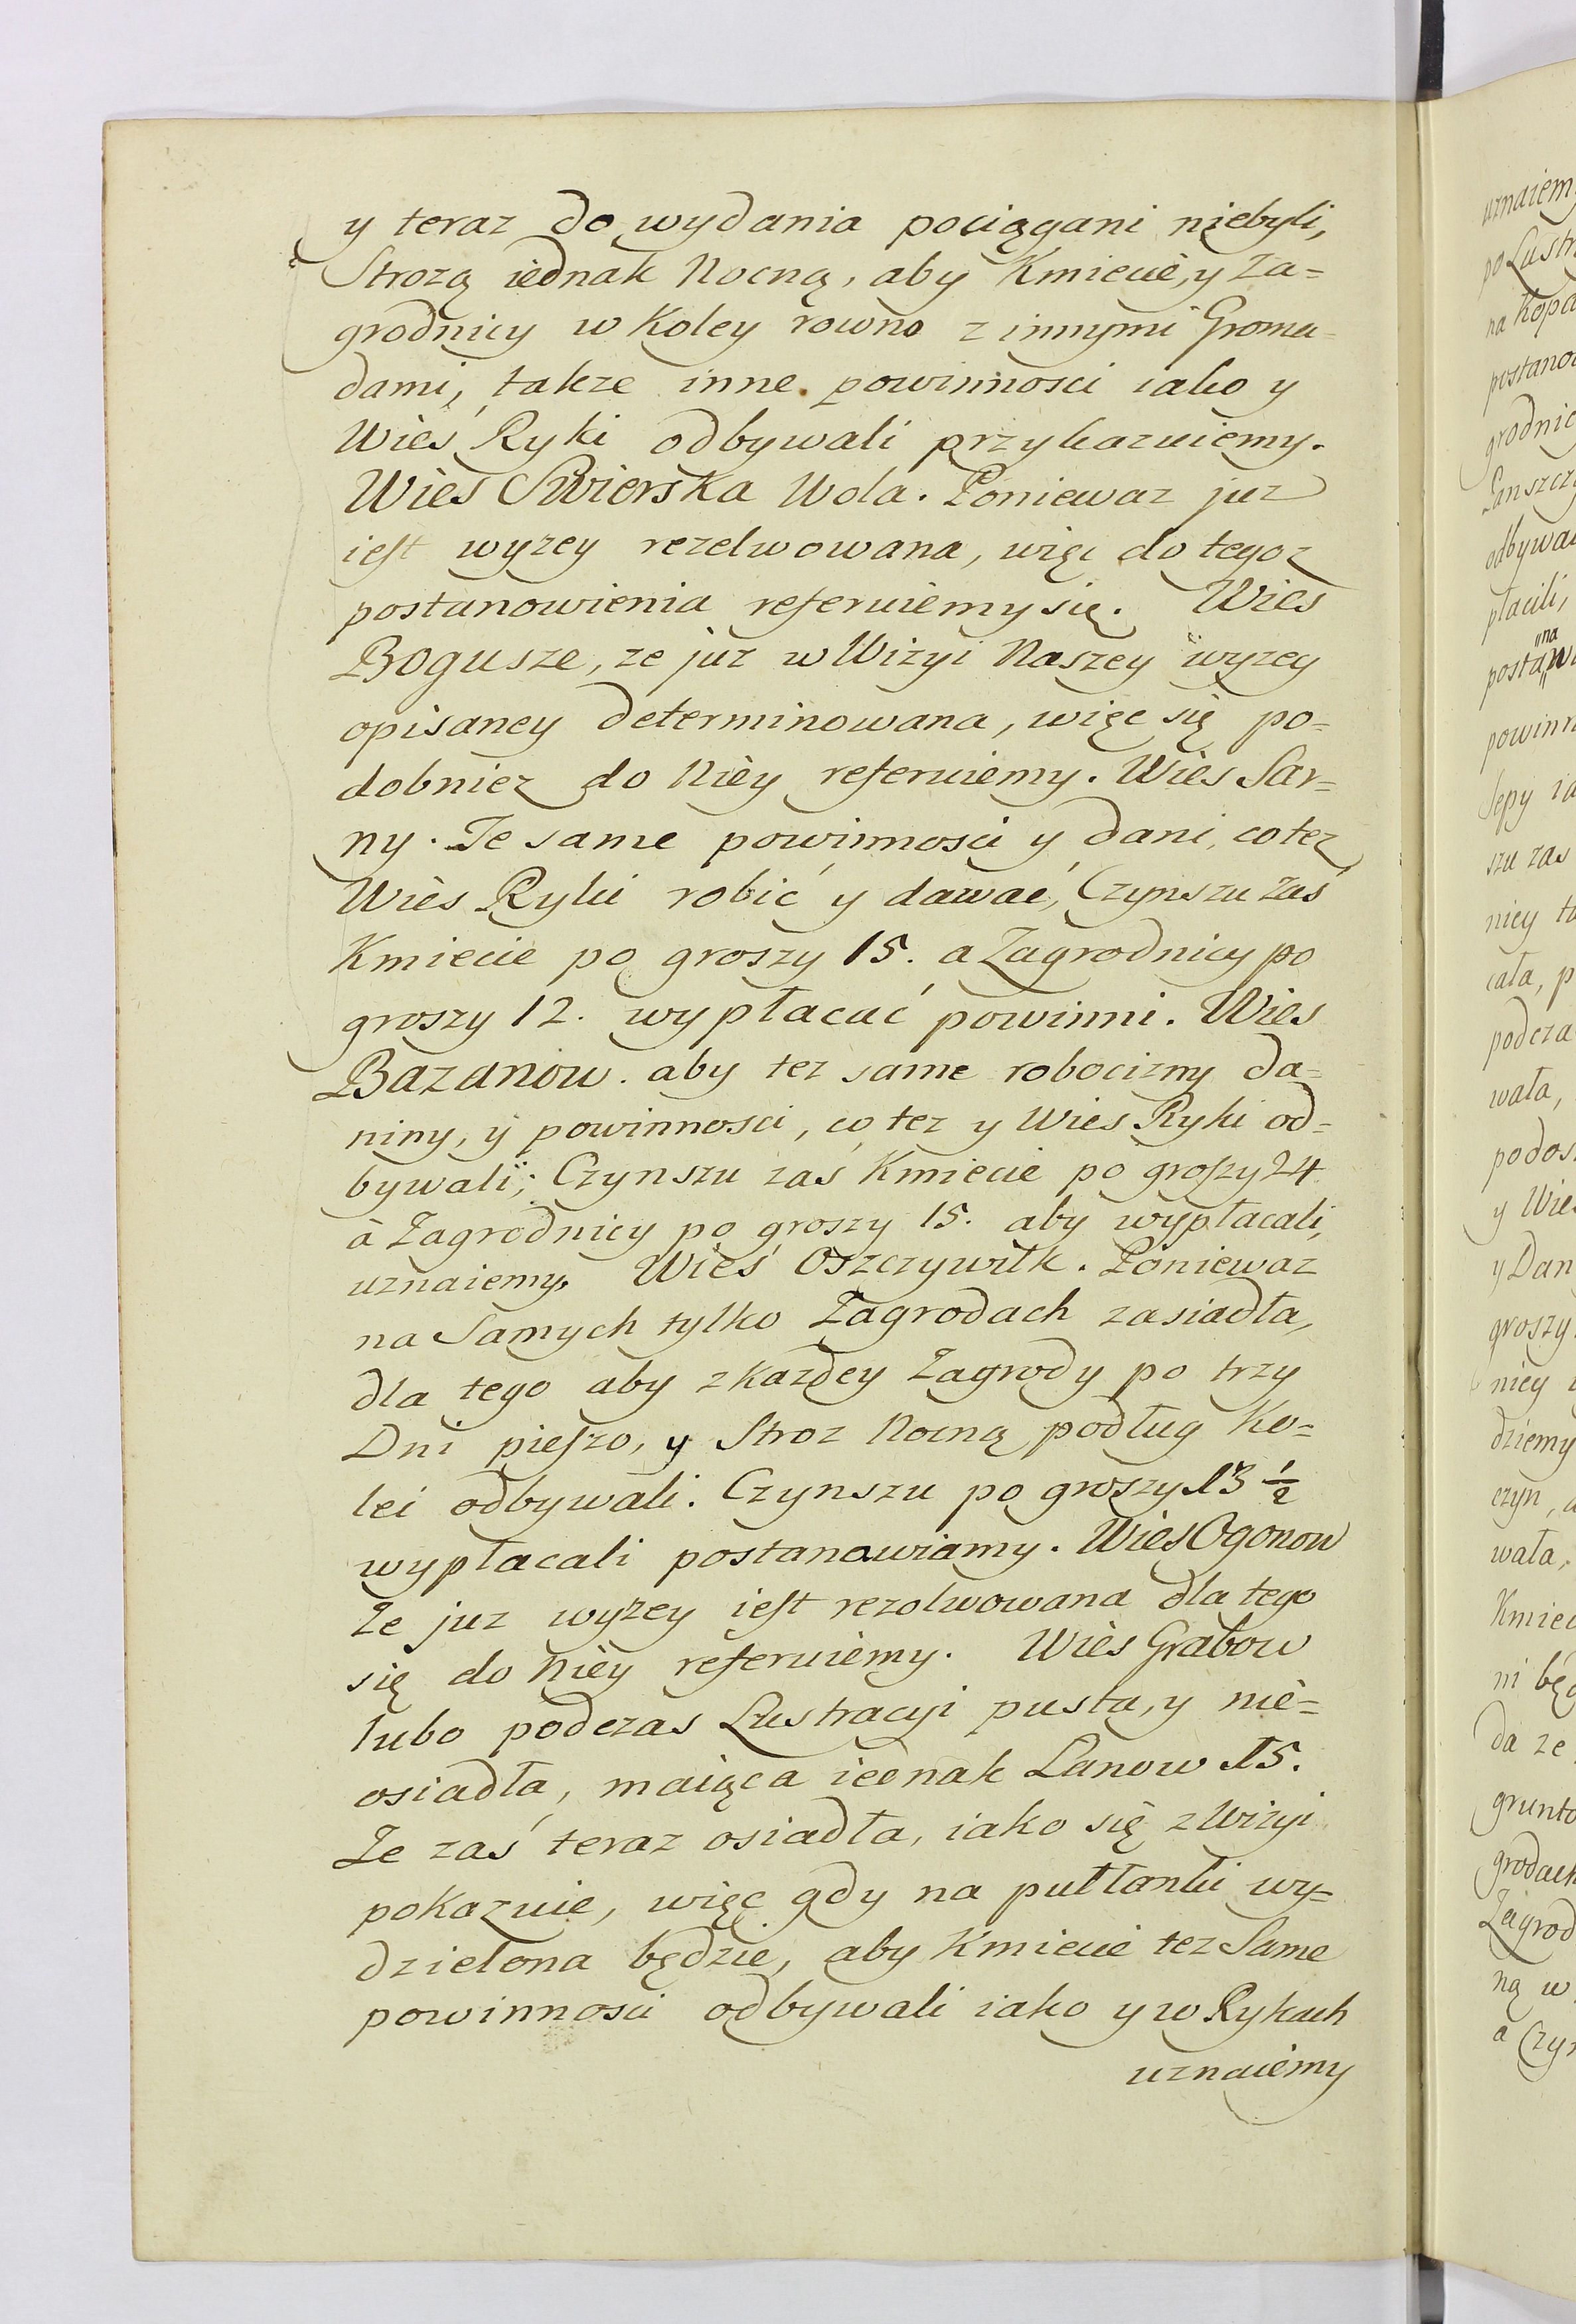 y teraz do wydania pociągani niebyli,
Strozą iednak Nocną, aby Kmiecie, y Za=
grodnicy w Koley rowno z innymi Groma=
dami, takze inne powinnosci iako y
Wieś Ryki odbywali przykazuiemy.
Wies Swierska Wola. Poniewaz juz
iest wyzey rezelwowana, więc do tegoz
postanowienia referuiemy się. Wies
Bogusze, ze juz w Wizyi Naszey wyzey
opisaney determinowana, więc się po=
dobniez do Niey referuiemy. Wies Sar=
ny. Te same powinnosci y dani, co tez
Wies Ryki robić y dawać, Czynszu zaś
Kmiecie po groszy 15. a Zagrodnicy po
groszy 12. wypłacać powinni. Wies
Bazanow. aby tez same robocizny da=
niny, y powinnosci, co tez y Wies Ryki od=
bywali; Czynszu zaś Kmiecie po groszy 24
à Zagrodnicy po groszy 15. aby wypłacali,
uznaiemy. Wieś Oszczywilk. Poniewaz
na Samych tylko Zagrodach zasiadła,
dla tego aby z Kazdey Zagrody po trzy
Dni pieszo, y Stroz Nocną podług Ko=
lei odbywali. Czynszu po groszy 13 1/2
wypłacali postanawiamy. Wies Ogonow
Ze juz wyzey iest rezolwowana dla tego
się do Niey referuiemy. Wies Grabow
lubo podczas Lustracyi pusta, y nie=
osiadła, maiąca iednak Lanow 15.
Ze zaś teraz osiadła, iako się z Wizyi
pokazuie, więc gdy na pułłanki wy=
dzielona będzie, aby Kmiecie tez Same
powinnosci odbywali iako y w Rykach
uznaiemy